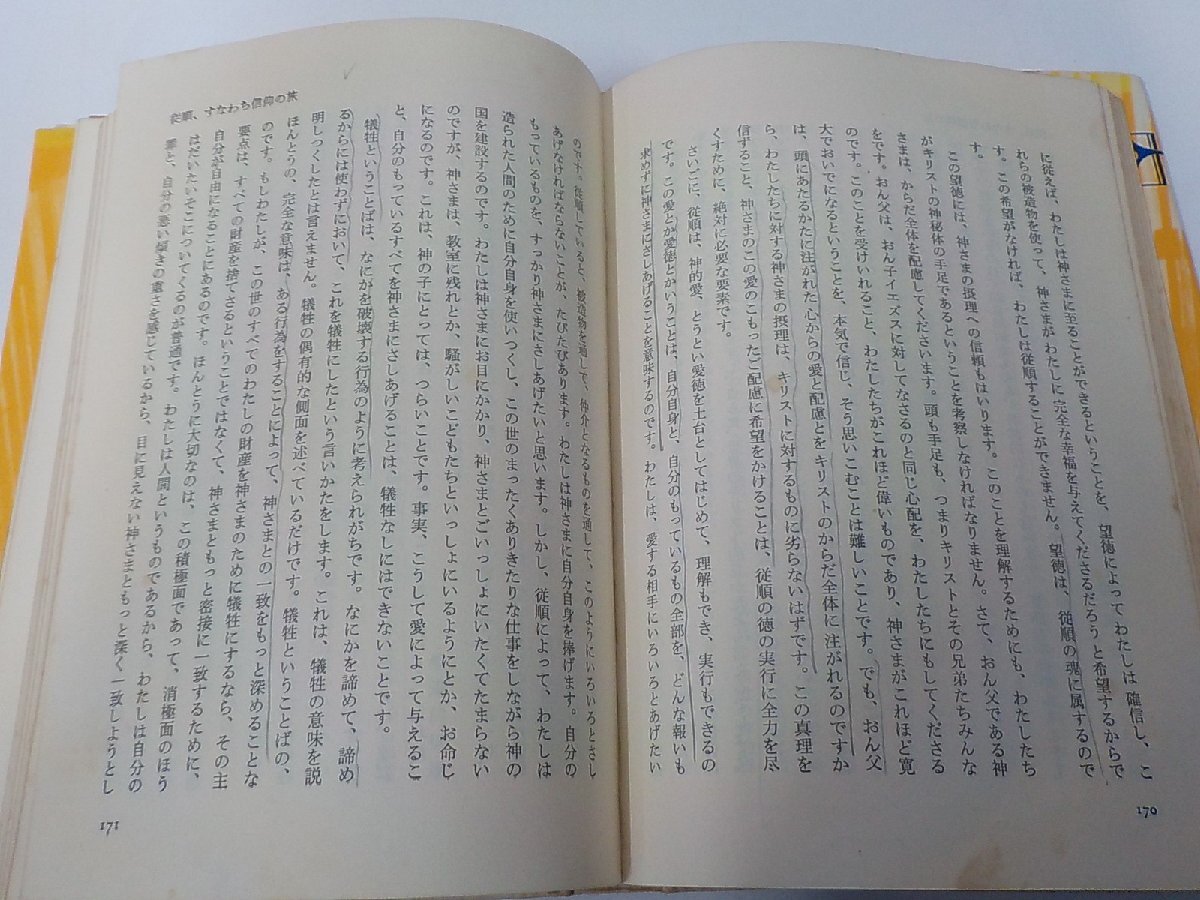 に従えば、わたしは神さまに至ることができるということを、望徳によってわたしは確信し、こ
れらの被造物を使って、神さまがわたしに完全な幸福を与えてくださるだろうと希望するからで
す。この希望がなければ、わたしは従順することができません。望徳は、従順の魂に属するので
す。
この望徳には、神さまの摂理への信頼もはいります。このことを理解するためにも、わたしたち
がキリストの神秘体の手足であるということを考察しなければなりません。さて、おん父である神
さまは、からだ全体を配慮してくださいます。頭も手足も、つまりキリストとその兄弟たちみんな
をです。おん父は、おん子イエズスに対してなさるのと同じ心配を、わたしたちにもしてくださる
のです。このことを受けいれること、わたしたちがこれほど偉いものであり、神さまがこれほど寛
大でおいでになるということを、本気で信じ、そう思いこむことは難しいことです。でも、おん父
は、頭にあたるかたに注がれた心からの愛と配慮とをキリストのからだ全体に注がれるのですか
ら、わたしたちに対する神さまの摂理は、キリストに対するものに劣らないはずです。この真理を
信ずること、神さまのこの愛のこもったご配慮に希望をかけることは、従順の徳の実行に全力を尽
くすために、絶対に必要な要素です。
さいごに、従順は、神的愛、とうとい愛徳を土台としてはじめて、理解もでき、実行もできるの
です。この愛が愛徳とかいうことは、自分自身と、自分のもっているもの全部を、どんな報いも
求めずに神さまにさしあげることを意味するのです。わたしは、愛する相手にいろいろとあげたい
170
従順、すなわち信仰の旅
のです。従順していると、被造物を通して、仲介となるものを通して、このようにいろいろとさし
あげなければならないことが、たびたびあります。わたしは神さまに自分自身を捧げます。自分の
もっているものを、すっかり神さまにさしあげたいと思います。しかし、従順によって、わたしは
造られた人間のために自分自身を使いつくし、この世のまったくありきたりな仕事をしながら神の
国を建設するのです。わたしは神さまにお目にかかり、神さまとごいっしょにいたくてたまらない
のですが、神さまは、教室に残れとか、騒がしいこどもたちといっしょにいるようにとか、お命じ
になるのです。これは、神の子にとっては、つらいことです。事実、こうして愛によって与えるこ
と、自分のもっているすべてを神さまにさしあげることは、犠牲なしにはできないことです。
犠牲ということばは、なにかを破壊する行為のように考えられがちです。なにかを諦めて、諦め
るからには使わずにおいて、これを犠牲にしたという言いかたをします。これは、犠牲の意味を説
明しつくしたとは言えません。犠牲の偶有的な側面を述べているだけです。犠牲ということばの、
ほんとうの、完全な意味は、ある行為をすることによって、神さまとの一致をもっと深めることな
のです。もしわたしが、この世のすべてのわたしの財産を神さまのために犠牲にするなら、その主
要点は、すべての財産を捨てさるということではなくて、神さまともっと密接に一致するために、
自分が自由になることにあるのです。ほんとうに大切なのは、この積極面であって、消極面のほう
はだいたいそこについてくるのが普通です。わたしは人間というものであるから、わたしは自分の
罪と、自分の悪い傾きの重さを感じているから、目に見えない神さまともっと深く一致しようとし
171